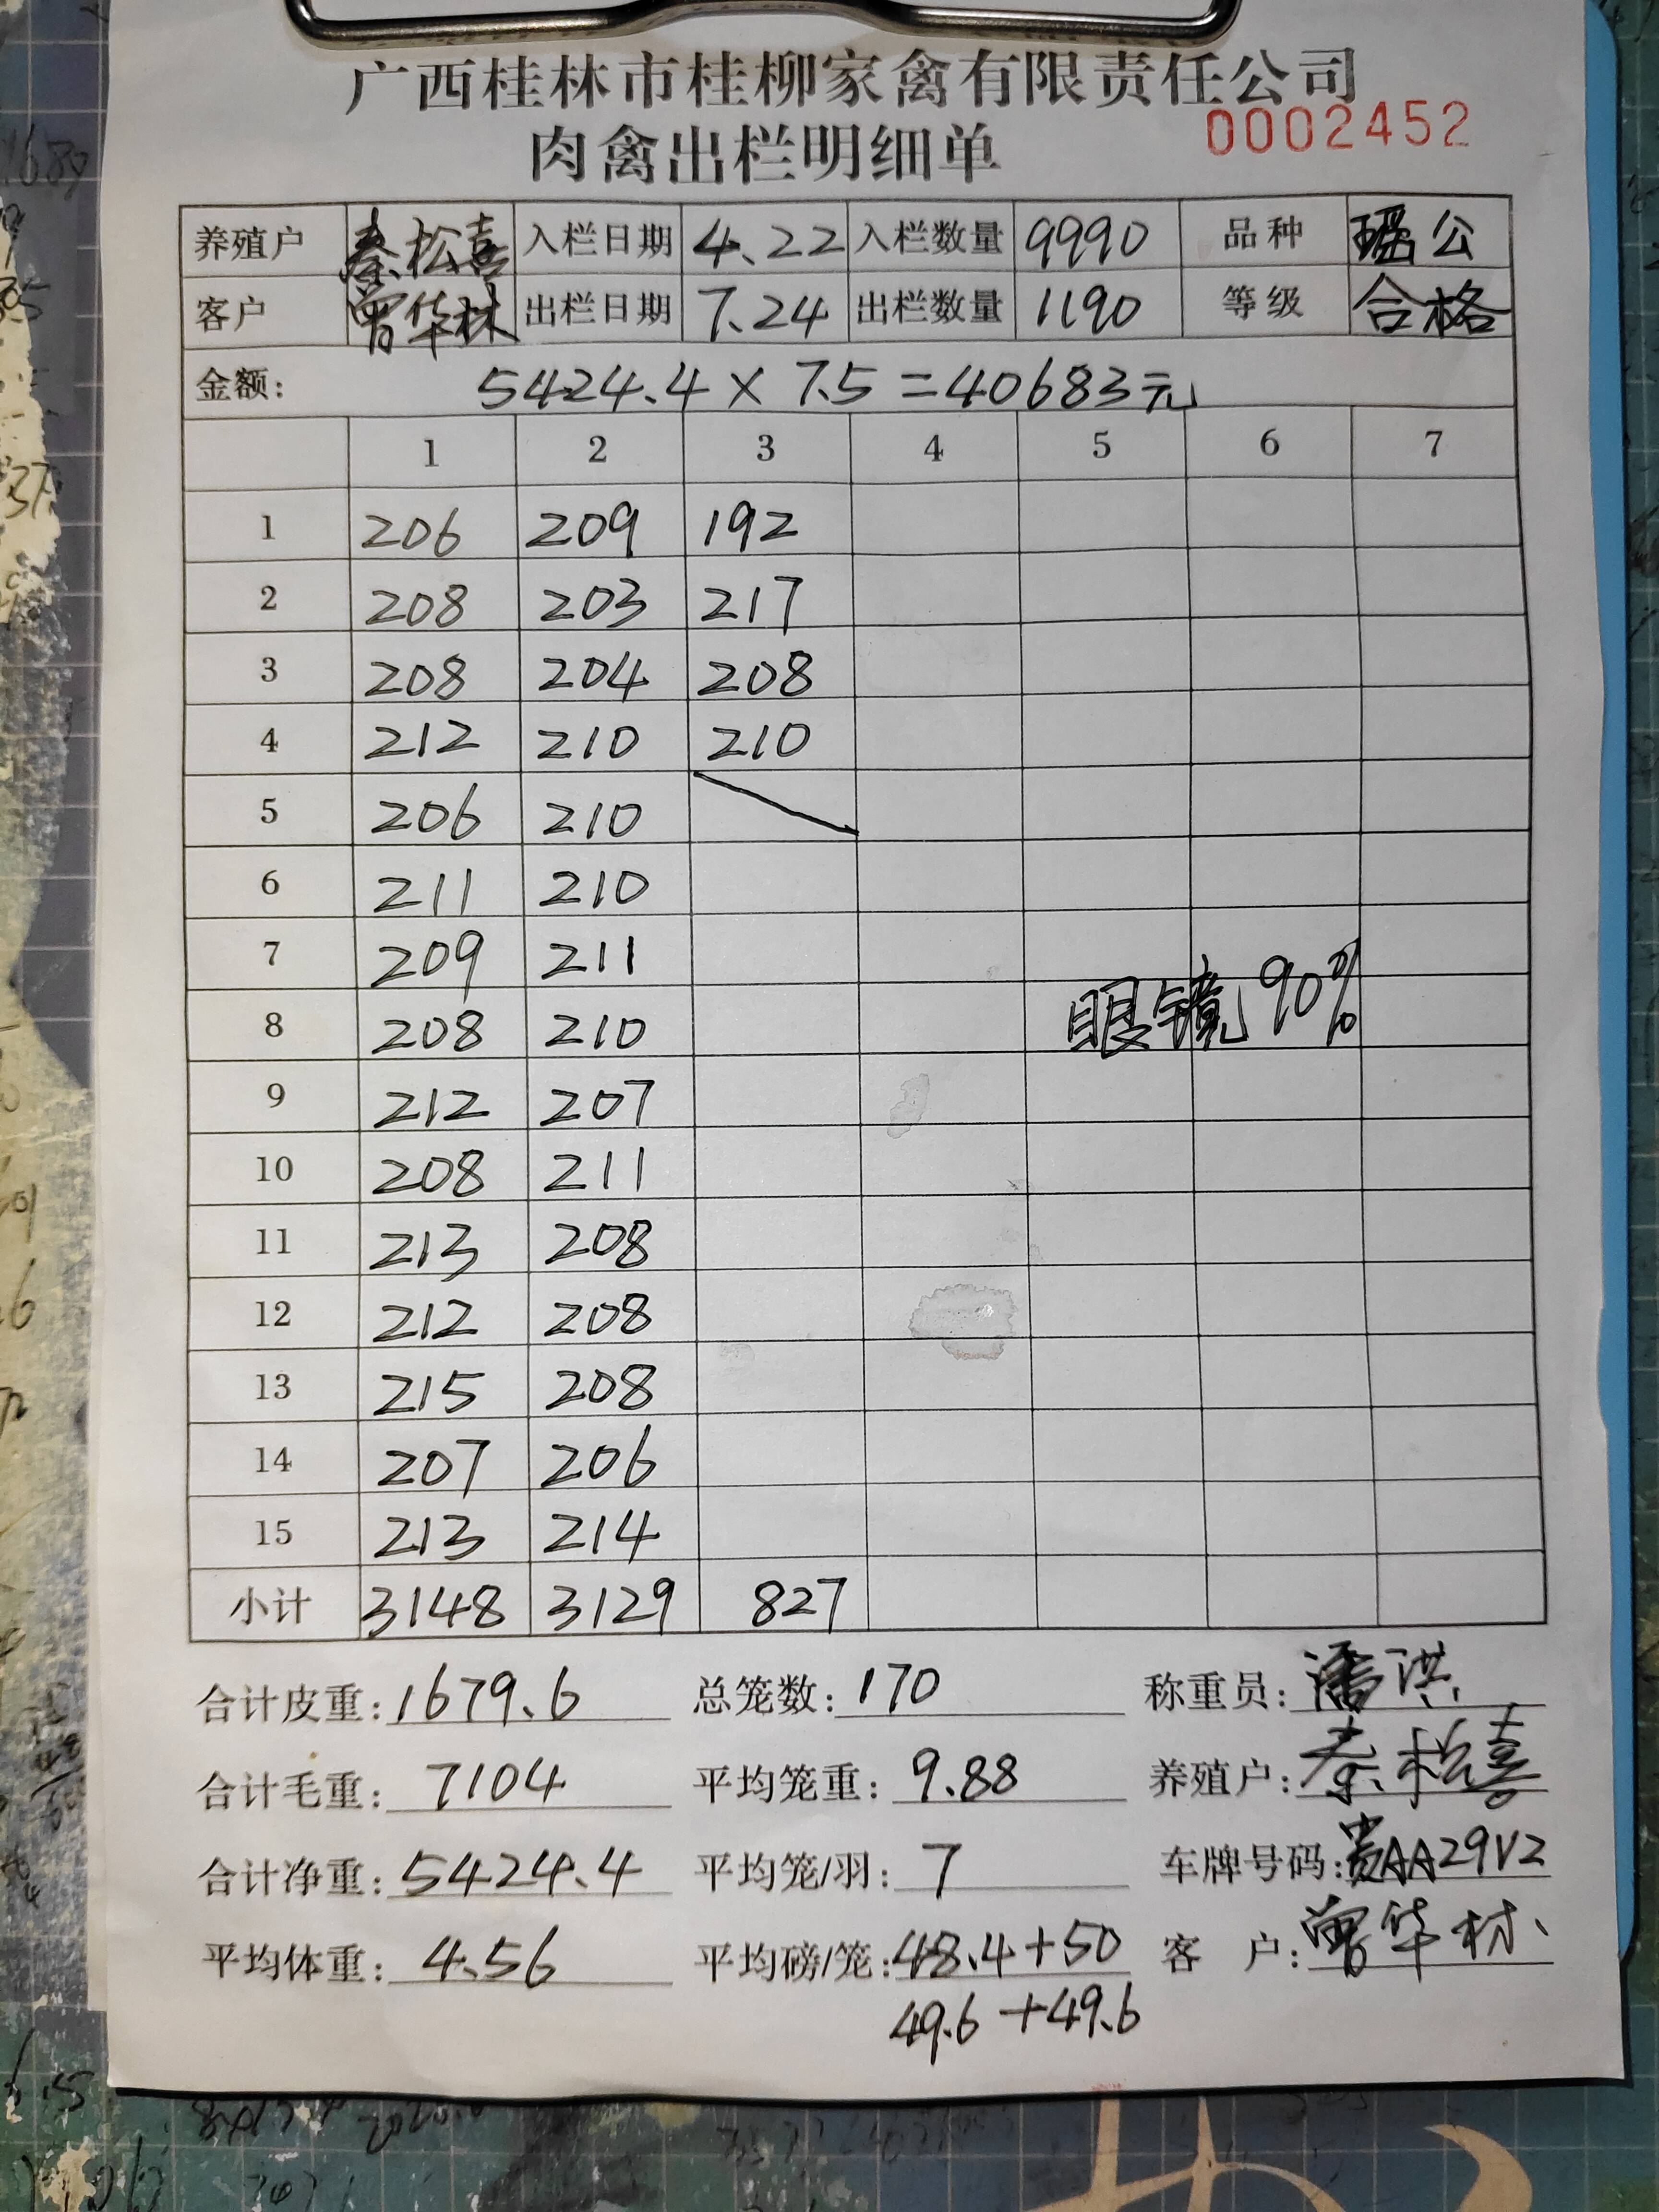 广西桂林市桂柳家禽有限责任公司
肉禽出栏明细单 0002452
养殖户 秦松喜 入栏日期 4.22 入栏数量 9990 品种 瑶公
客户 曾华林 出栏日期 7.24 出栏数量 1190 等级 合格
金额: 5424.4 × 7.5 = 40683元
1 2 3 4 5 6 7
1 206 209 192
2 208 203 217
3 208 204 208
4 212 210 210
5 206 210
6 211 210
7 209 211
8 208 210 眼镜90%
9 212 207
10 208 211
11 213 208
12 212 208
13 215 208
14 207 206
15 213 214
小计 3148 3129 827
合计皮重: 1679.6 总笼数: 170 称重员: 潘洪
合计毛重: 7104 平均笼重: 9.88 养殖户: 秦松喜
合计净重: 5424.4 平均笼/羽: 7 车牌号码: 贵AA29V2
平均体重: 4.56 平均磅/笼: 48.4+50 客 户: 曾华林
49.6+49.6